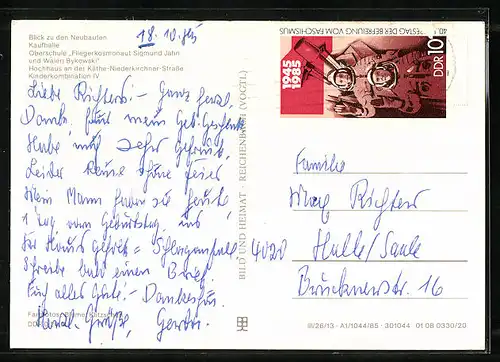 Blick zu den Neubauten
Kaufhalle
Oberschule „Fliegerkosmonaut Sigmund Jähn
und Waleri Bykowski"
Hochhaus an der Käthe-Niederkirchner-Straße
Kinderkombination IV
18.10.85
Liebe Richters! – Ganz herzl.
Dank für mein Geb. Geschenk
Habe mich sehr gefreut.
Leider keine Feier
Mein Mann haben sie heute
1 Tag vom Geburtstag ins
Schlaganfall
Schreibe bald einen Brief.
Für alles Gute
Herzl. Grüße,
BILD UND HEIMAT · REICHENBACH (VOGTL)
40. JAHRESTAG DER BEFREIUNG VOM FASCHISMUS
1945
1985
DDR 10
Familie
Max Richter
4020 Halle/Saale
Brucknerstr. 16
III/26/13 · A1/1044/85 · 301044 01 08 0330/20